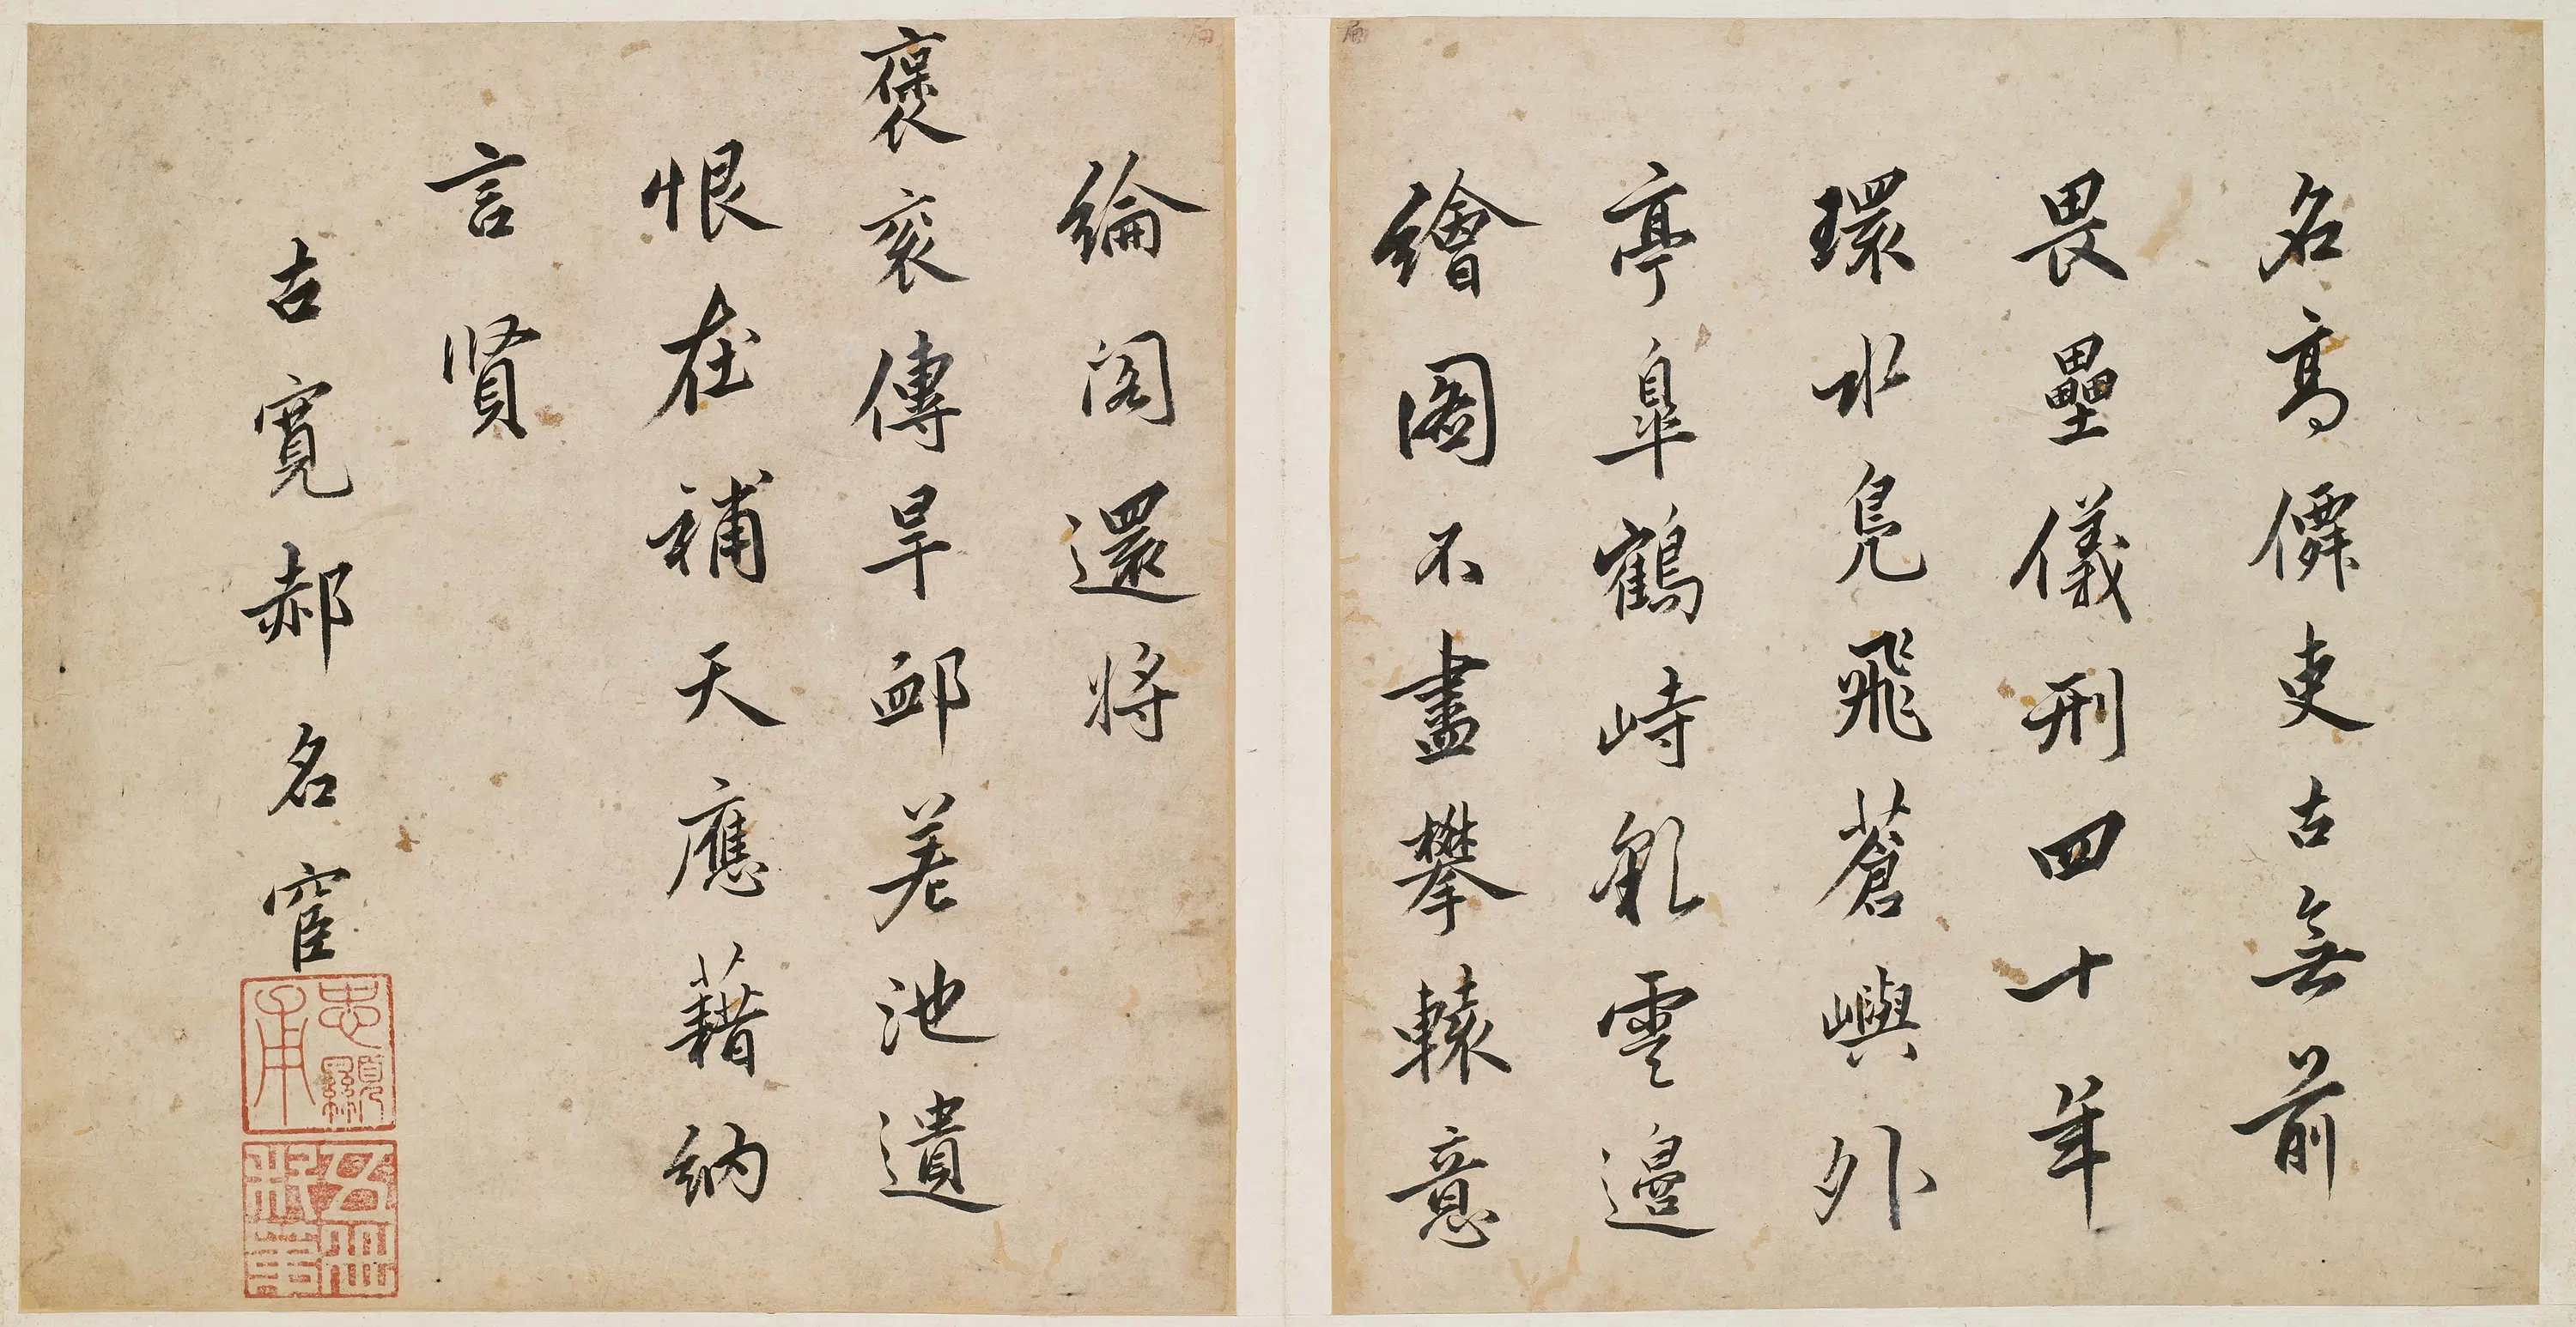 名高僊吏古無前
畏壘儀刑四十年
環水鳧飛蒼嶼外
亭皐鶴峙雲邊
繪圖不盡攀轅意
綸閣還將
褒袞傳旱卹差池遺
恨在補天應藉納
言賢
古寬郝名宦